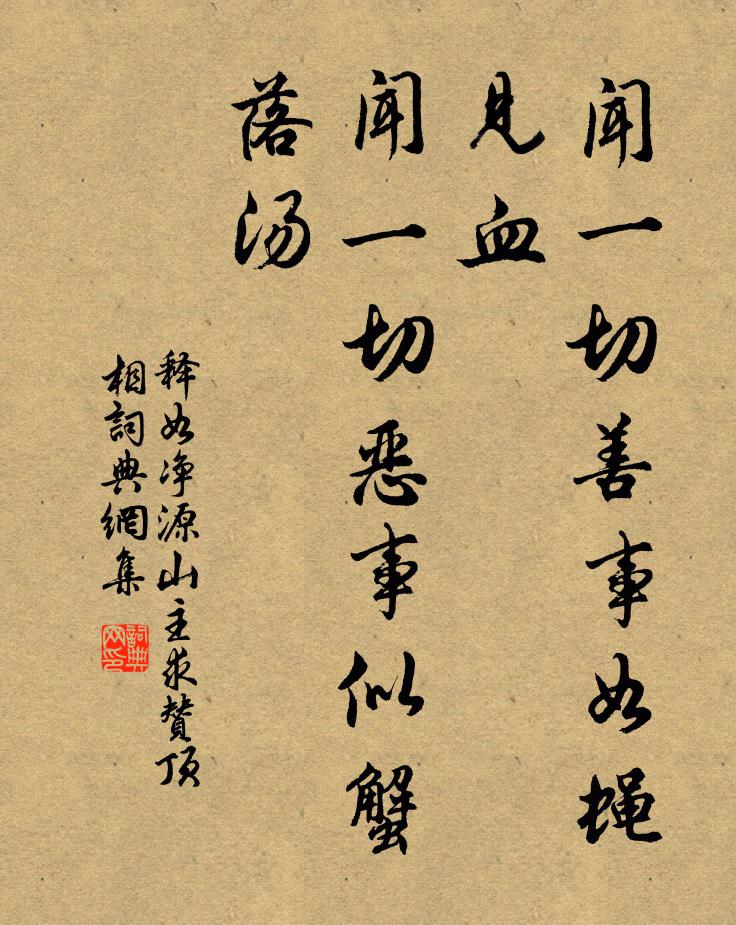 闻一切善事如蝇
见血
闻一切恶事似蟹
落汤
释如净源山主求赞顶
相詞典網集
詞典
网印